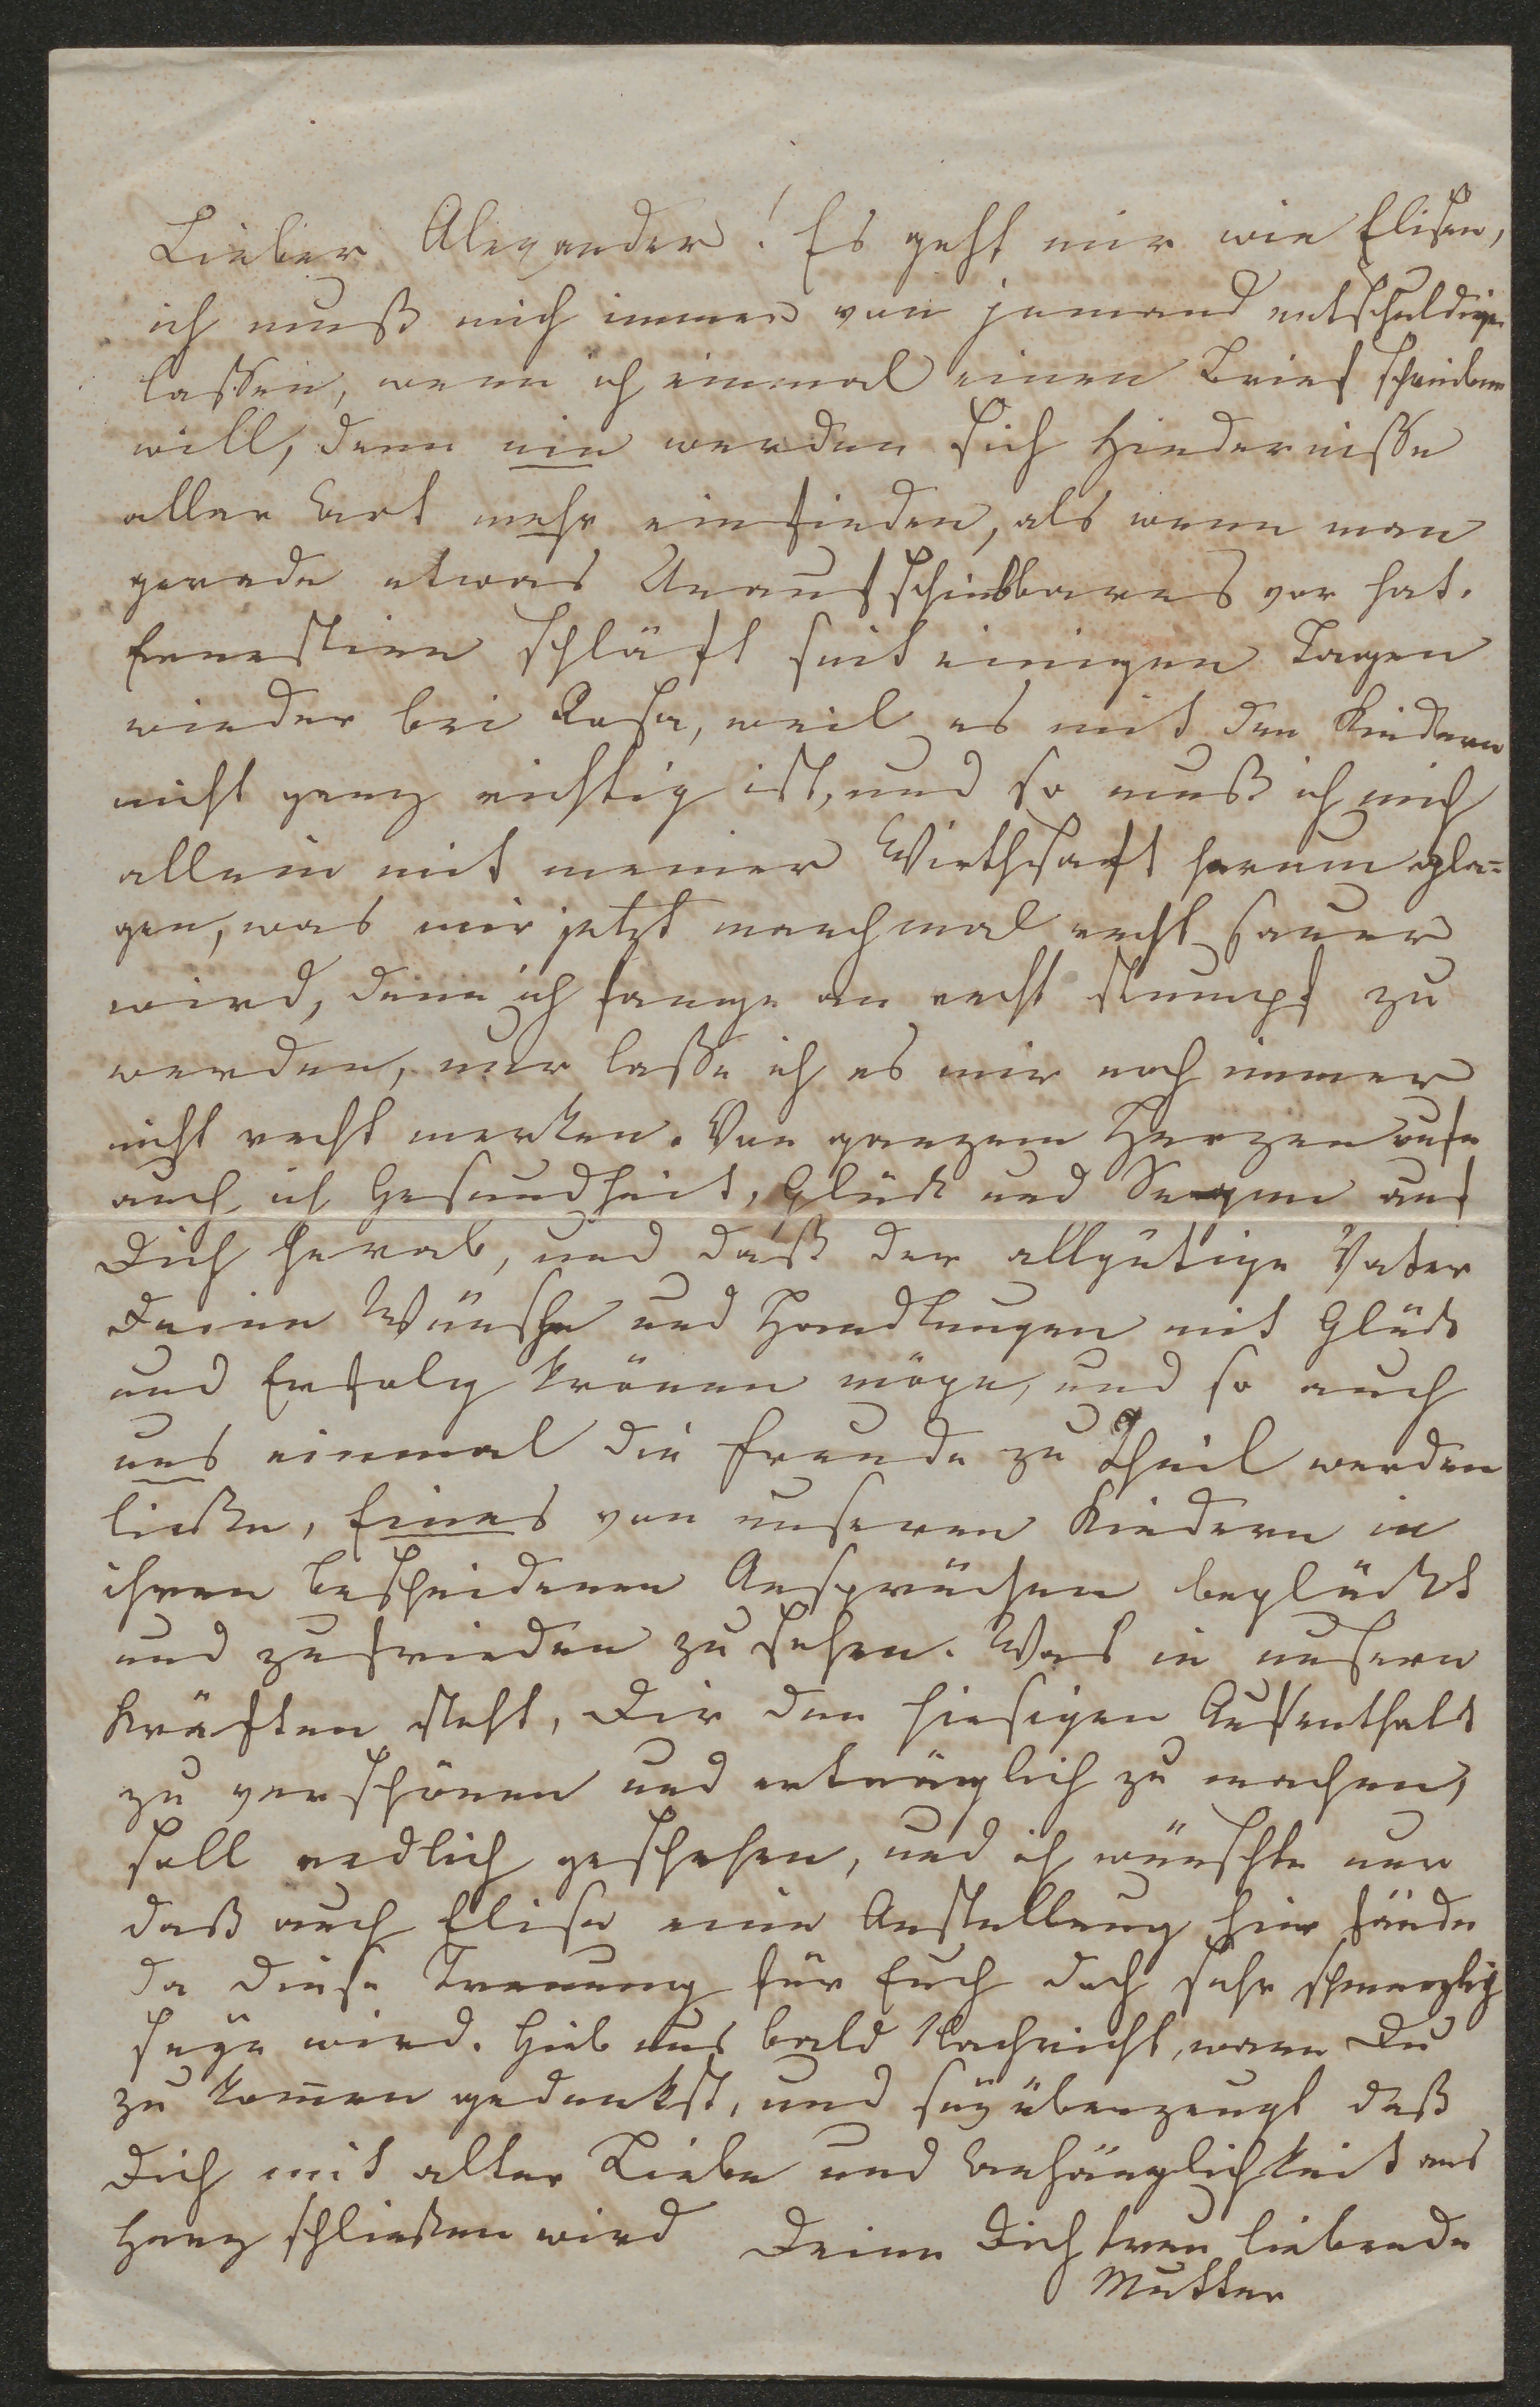 Lieber Alexander! Es geht mir wie Elisen,
ich muß mich immer von jemand entschuldigen
lassen, wenn ich einmal einen Brief schreiben
will, denn nie werden sich Hindernisse
aller Art mehr einfinden, als wenn man
gerade etwas Unaufschiebbares vor hat.
Ernestine schläft seit einigen Tagen
wieder bei Rosa, weil es mit den Kindern
nicht ganz richtig ist, und so muß ich mich
allein mit meiner Wirthschaft herum pla=
gen, was mir jetzt manchmal recht sauer
wird, denn ich fange an recht stumpf zu
werden, nur lasse ich es mir noch immer
nicht recht merken. Von ganzem Herzen rufe
auch ich Gesundheit, Glück und Seegen auf
Dich herab, und daß der allgütige Vater
Deine Wünsche und Handlungen mit Glück
und Erfolg krönen möge, und so auch
uns einmal die Freude zu Theil werden
ließe, Eines von unseren Kindern in
ihren bescheidenen Ansprüchen beglückt
und zufrieden zu sehen. Was in unsern
Kräften steht, Dir den hiesigen Aufenthalt
zu verschönen und erträglich zu machen,
soll redlich geschehen, und ich wünschte nur
daß auch Elise eine Anstellung hier fände
da diese Trennung für Euch doch sehr schmerzlich
seyn wird. Gieb uns bald Nachricht, wann Du
zu kom̄en gedenkst, und sey überzeugt daß
Dich mit alter Liebe und Anhänglichkeit ans
Herz schließen wird Deine Dich treu liebende
Mutter